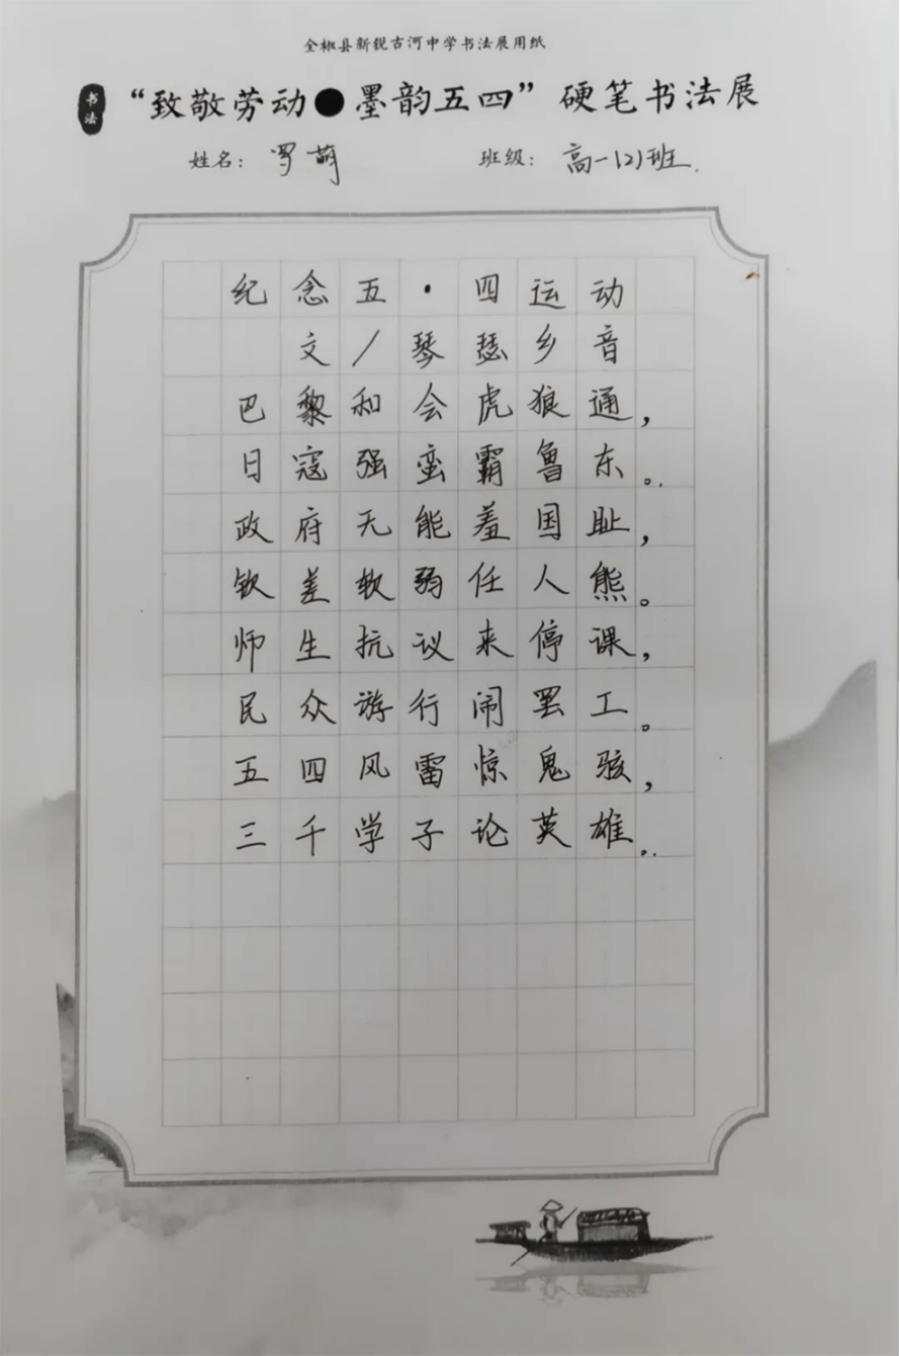 全椒县新锐古河中学书法展用纸
书法
“致敬劳动●墨韵五四”硬笔书法展
姓名：罗萌 班级：高一(2)班.
纪念五·四运动
文/琴瑟乡音
巴黎和会虎狼通，
日寇强蛮霸鲁东。
政府无能羞国耻，
钦差软弱任人熊。
师生抗议来停课，
民众游行闹罢工。
五四风雷惊鬼骇，
三千学子论英雄。